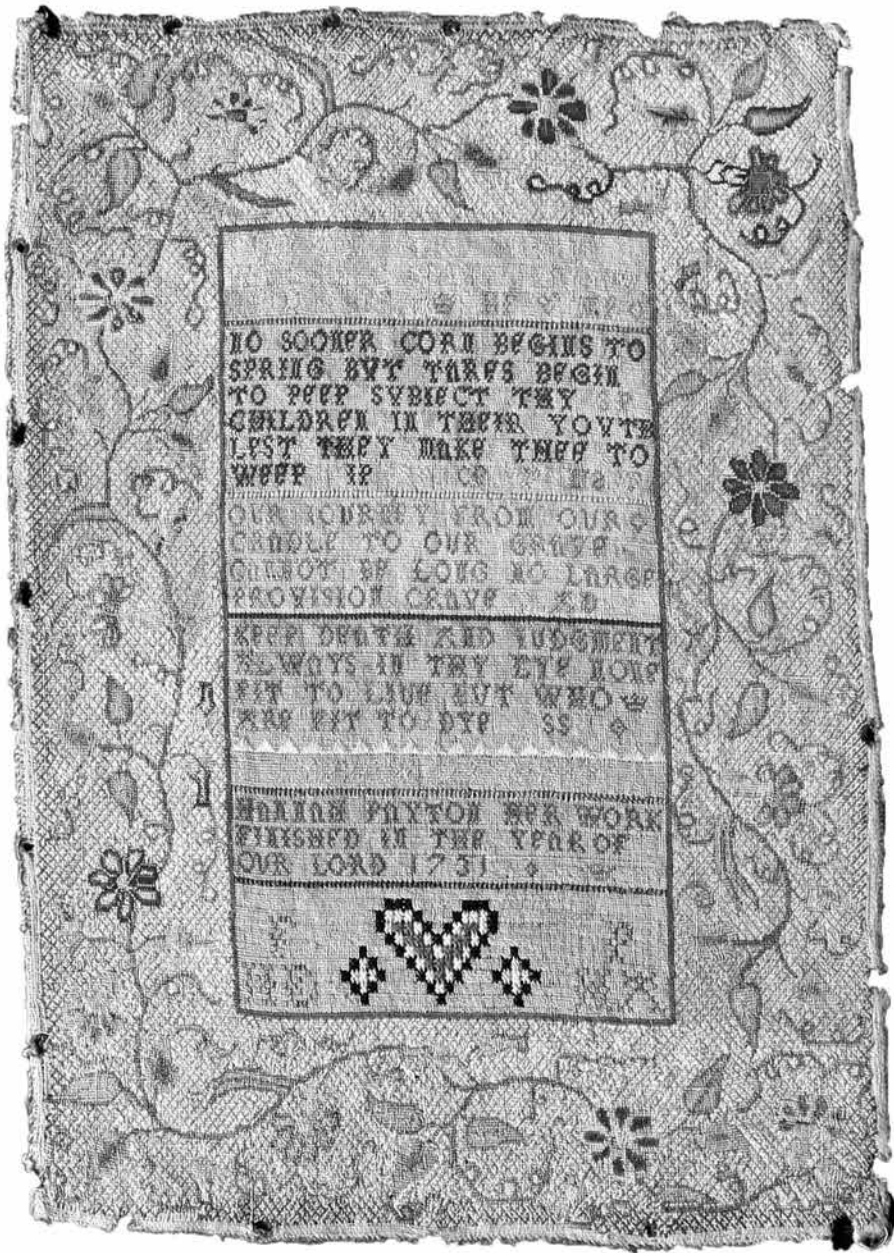 NO SOONER CORN BEGINS TO
SPRING BVT TARES BEGIN
TO PEEP SVBIECT THY
CHILDREN IN THEIR YOVTH
LEST THEY MAKE THEE TO
WEEP
OUR IOURNEY FROM OUR
CRADLE TO OUR GRAVE
CANNOT BE LONG NO LARGE
PROVISION CRAVE
KEEP DEATH AND IUDGMENT
ALWAYS IN THY EYE NONE
FIT TO LIVE BUT WHO
ARE FIT TO DYE SS
HANNAH PAYTON HER WORK
FINISHED IN THE YEAR OF
OUR LORD 1731